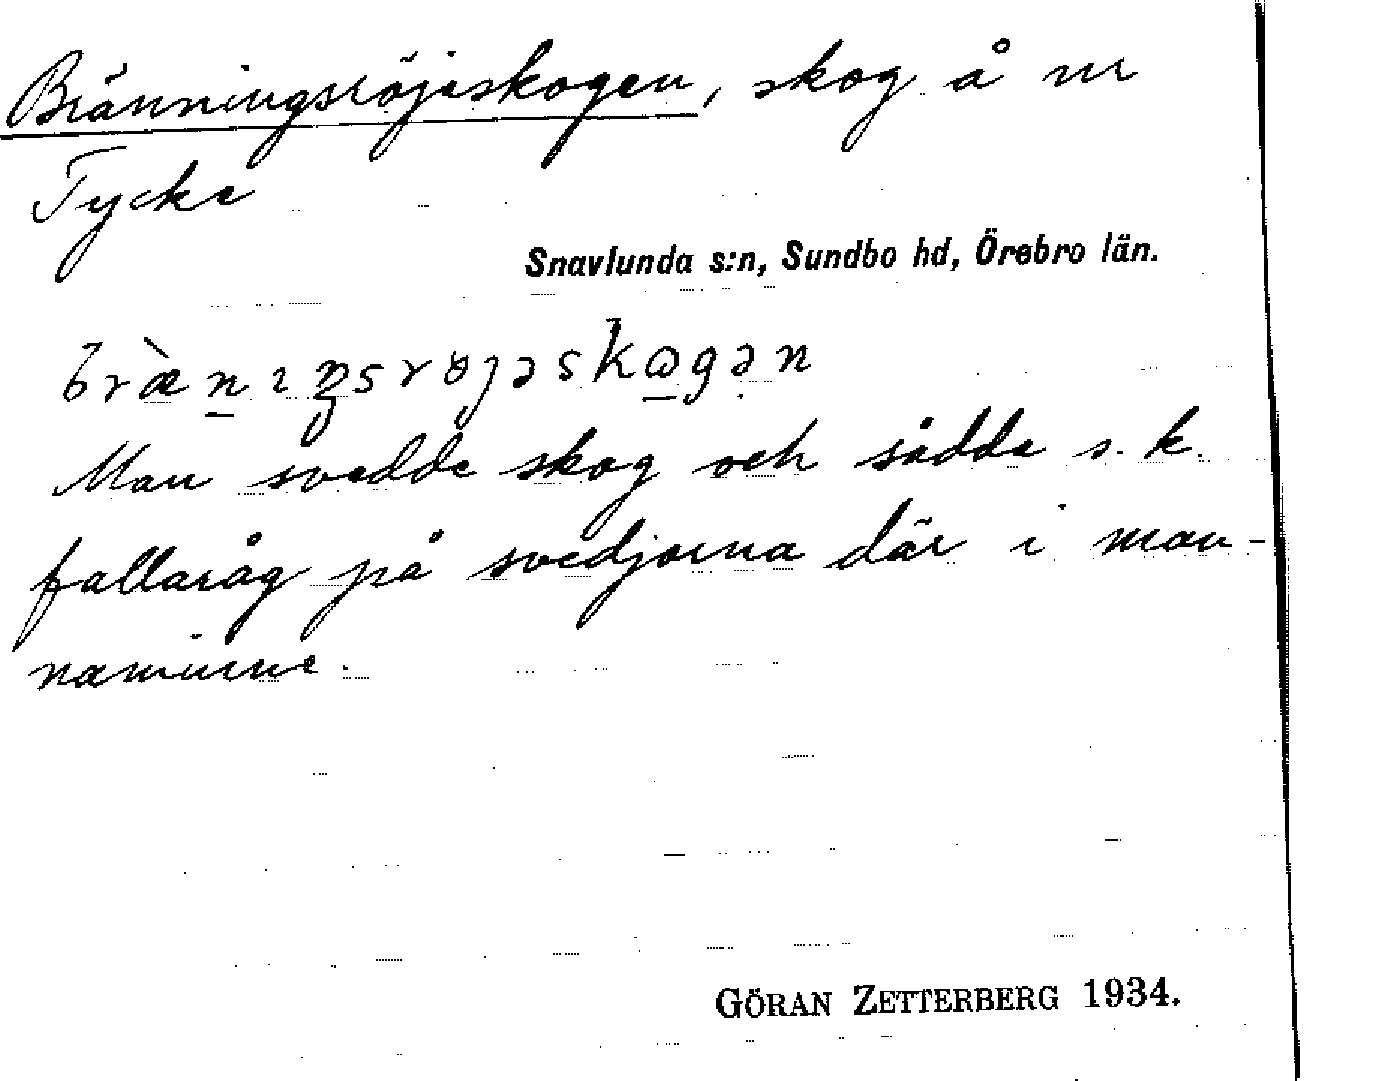 Bränningsröjeskogen, skog å nr
Tycke
Snavlunda s:n, Sundbo hd, Örebro län.
bræ̀nıŋsrøjəskogən
Man svedde skog och sådde s. k.
fallaråg på svedjorna där i man-
naminne.
GÖRAN ZETTERBERG 1934.